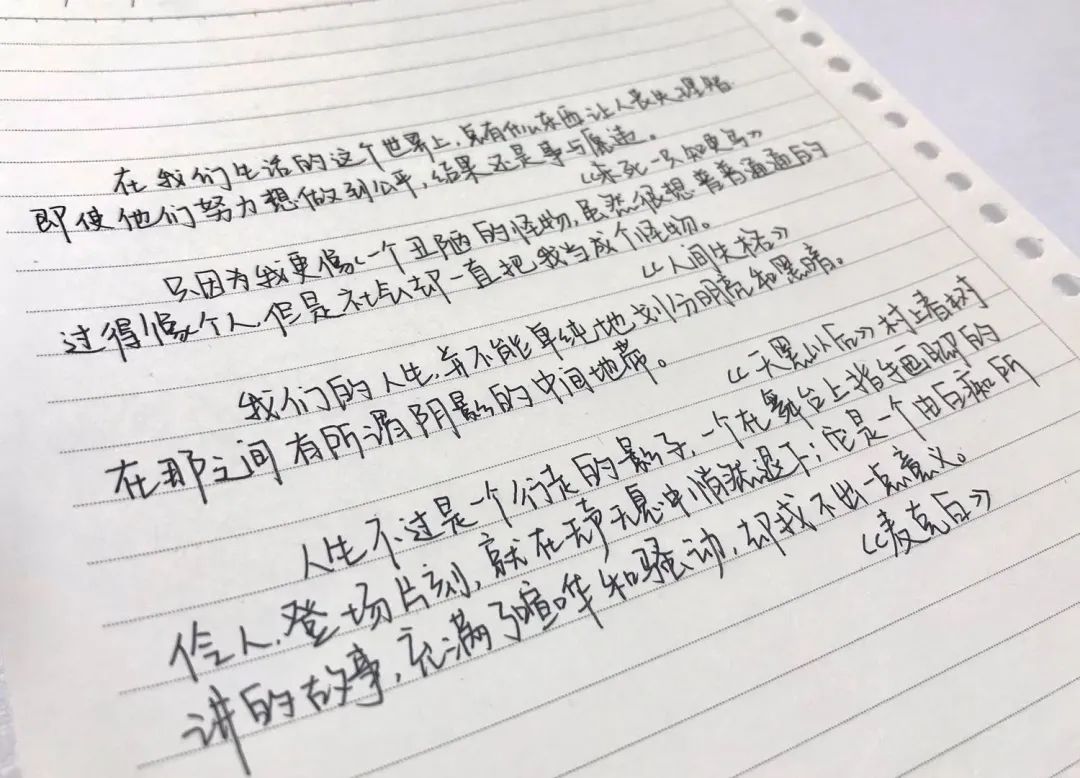 在我们生活的这个世界上,总有什么东西让人丧失理智
即使他们努力想做到公平,结果还是事与愿违。
《杀死一只知更鸟》
只因为我更像一个丑陋的怪物,虽然很想普普通通的
过得像个人,但是社会却一直把我当成个怪物。
《人间失格》
我们的人生,并不能单纯地划分明亮和黑暗。
在那之间有所谓阴影的中间地带。
《天黑以后》村上春树
人生不过是一个行走的影子,一个在舞台上指手画脚的
伶人,登场片刻,就在无声无息中悄然退下;它是一个由白痴所
讲的故事,充满了喧哗和骚动,却找不出一点意义。
《麦克白》